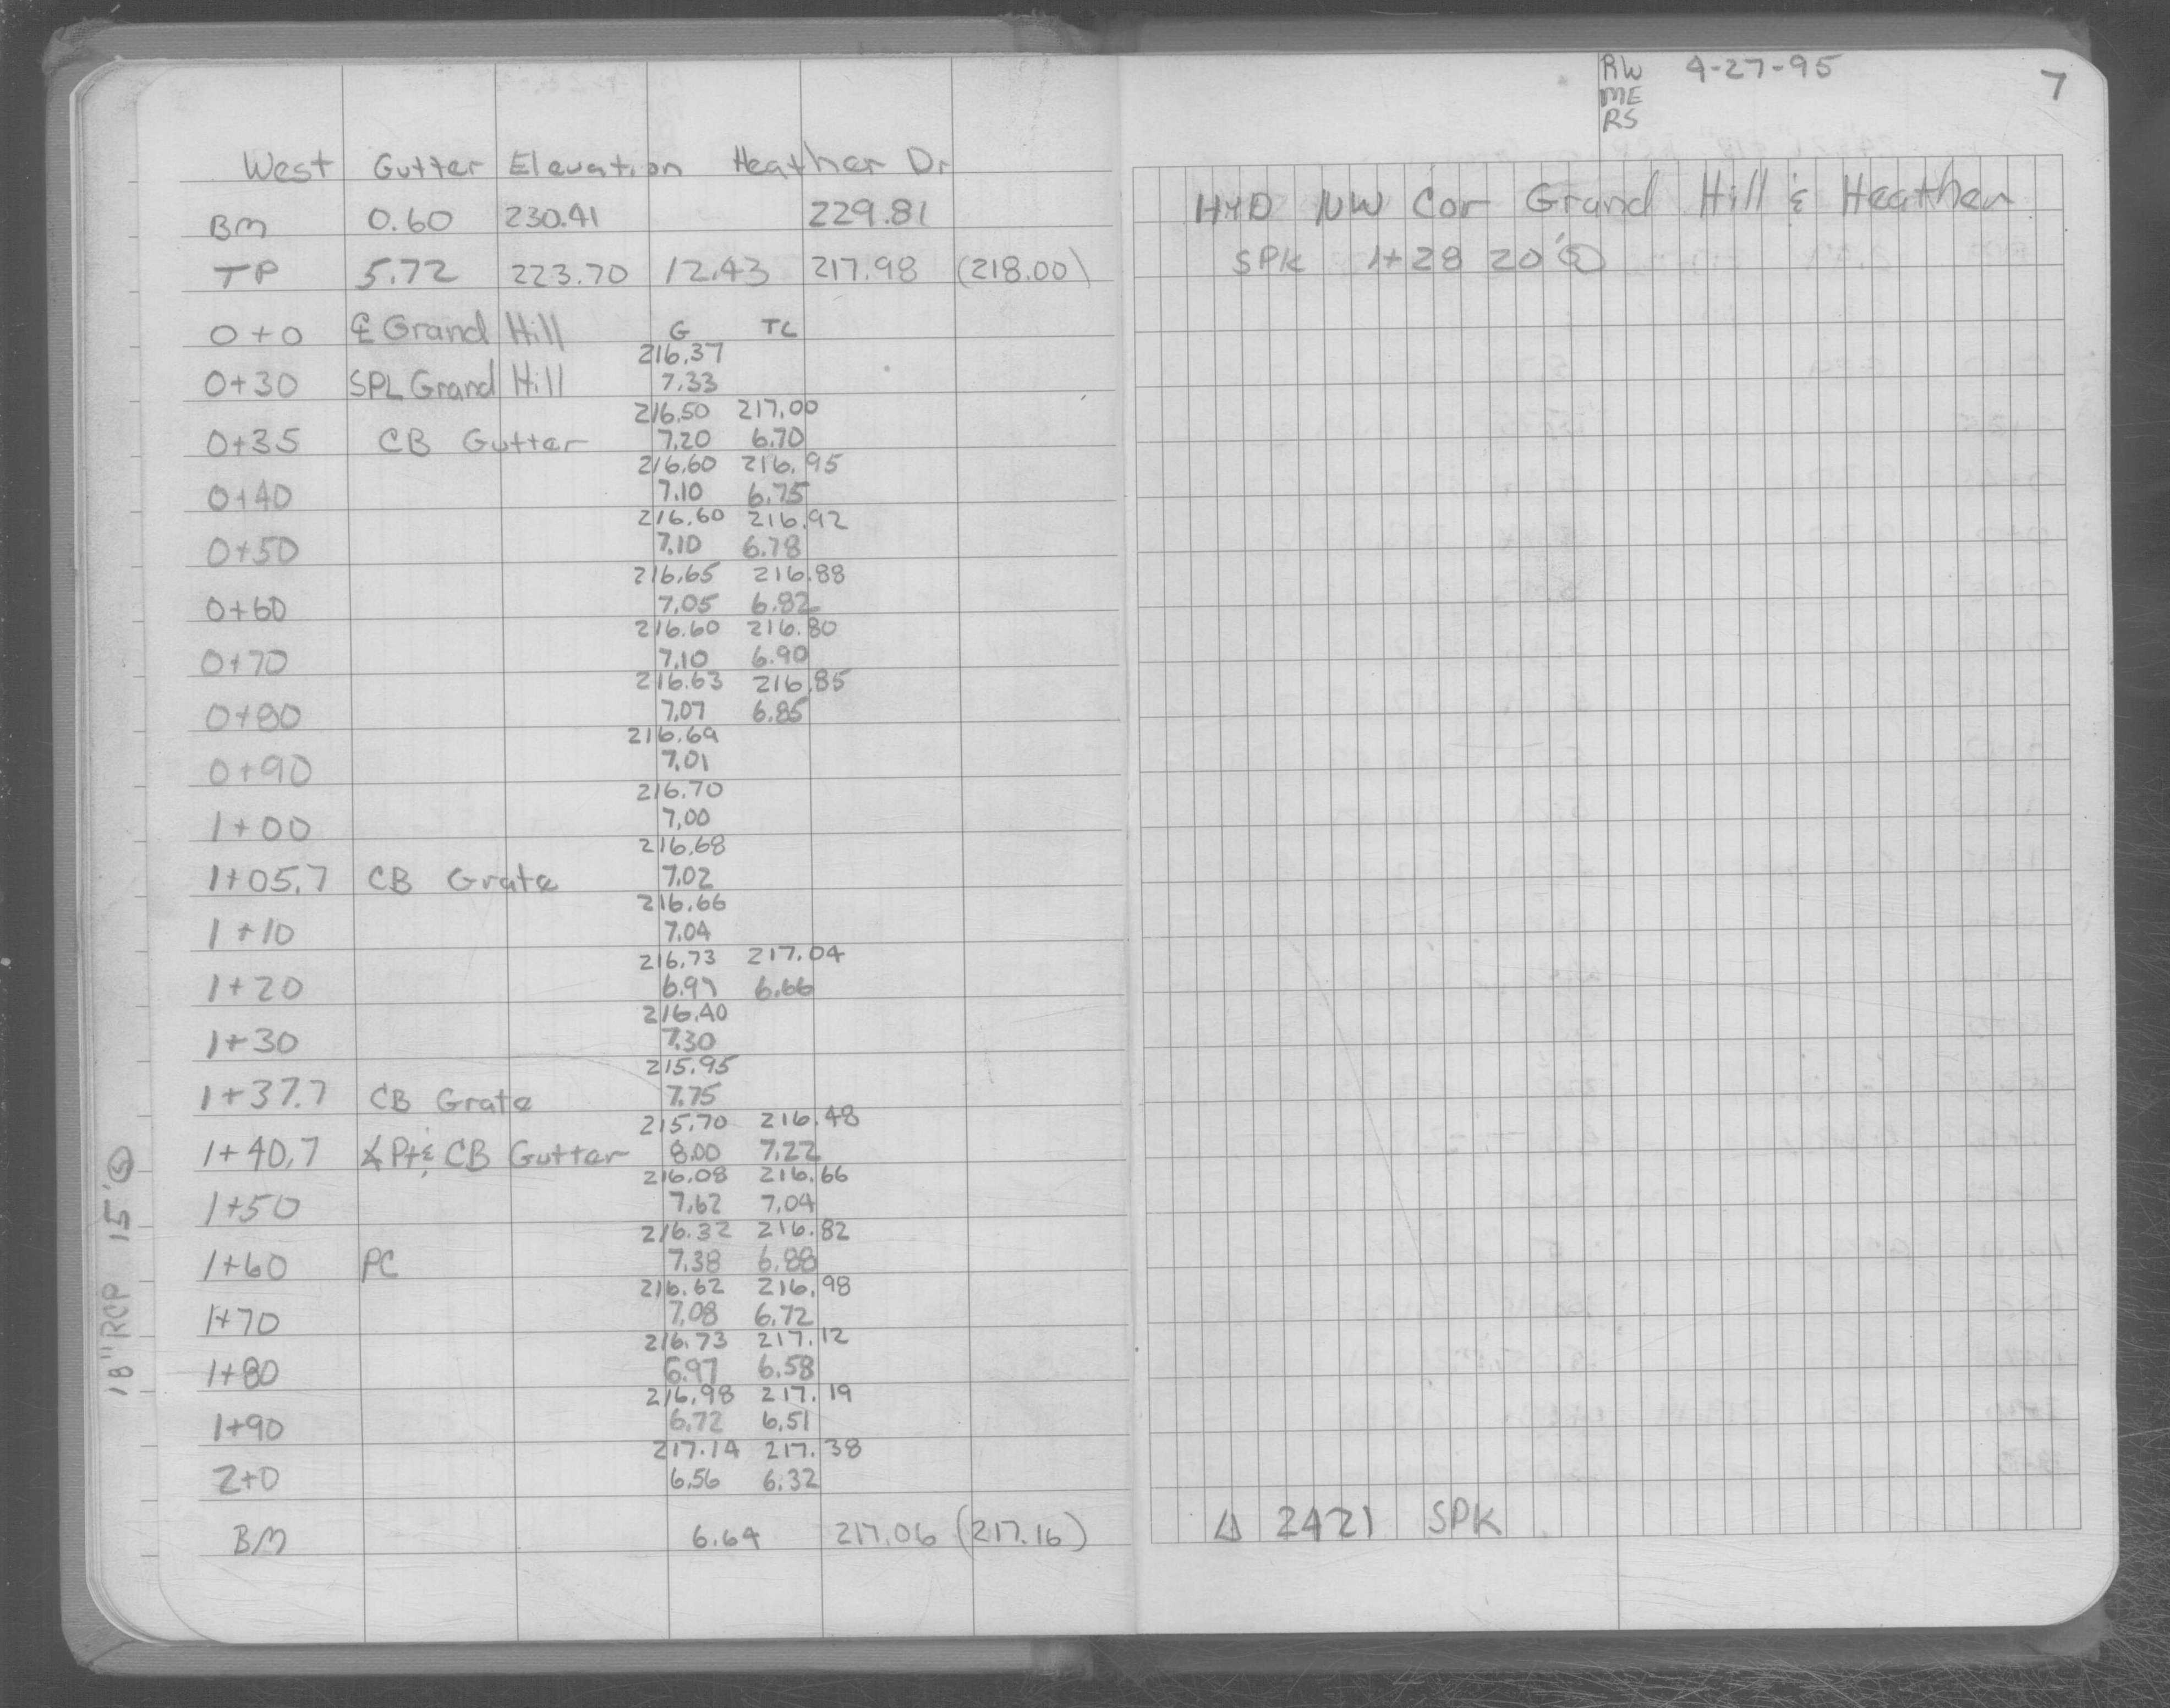 West Gutter Elevation Heather Dr
BM 0.60 230.41 229.81
TP 5.72 223.70 12.43 217.98 (218.00)
0+0 ℄ Grand Hill G TC
216.37
0+30 SPL Grand Hill 7.33
216.50 217.00
0+35 CB Gutter 7.20 6.70
216.60 216.95
0+40 7.10 6.75
216.60 216.92
0+50 7.10 6.78
216.65 216.88
0+60 7.05 6.82
216.60 216.80
0+70 7.10 6.90
216.63 216.85
0+80 7.07 6.85
216.69
0+90 7.01
216.70
1+00 7.00
216.68
1+05.7 CB Grate 7.02
216.66
1+10 7.04
216.73 217.04
1+20 6.97 6.66
216.40
1+30 7.30
215.95
1+37.7 CB Grate 7.75
215.70 216.48
1+40.7 ∡ Pt & CB Gutter 8.00 7.22
216.08 216.66
1+50 7.62 7.04
216.32 216.82
1+60 PC 7.38 6.88
216.62 216.98
1+70 7.08 6.72
216.73 217.12
1+80 6.97 6.58
216.98 217.19
1+90 6.72 6.51
217.14 217.38
2+0 6.56 6.32
BM 6.64 217.06 (217.16)
18" RCP 15'
RW 4-27-95 7
ME
RS
HYD NW Cor Grand Hill & Heather
SPK 1+28 20'
△ 2421 SPK